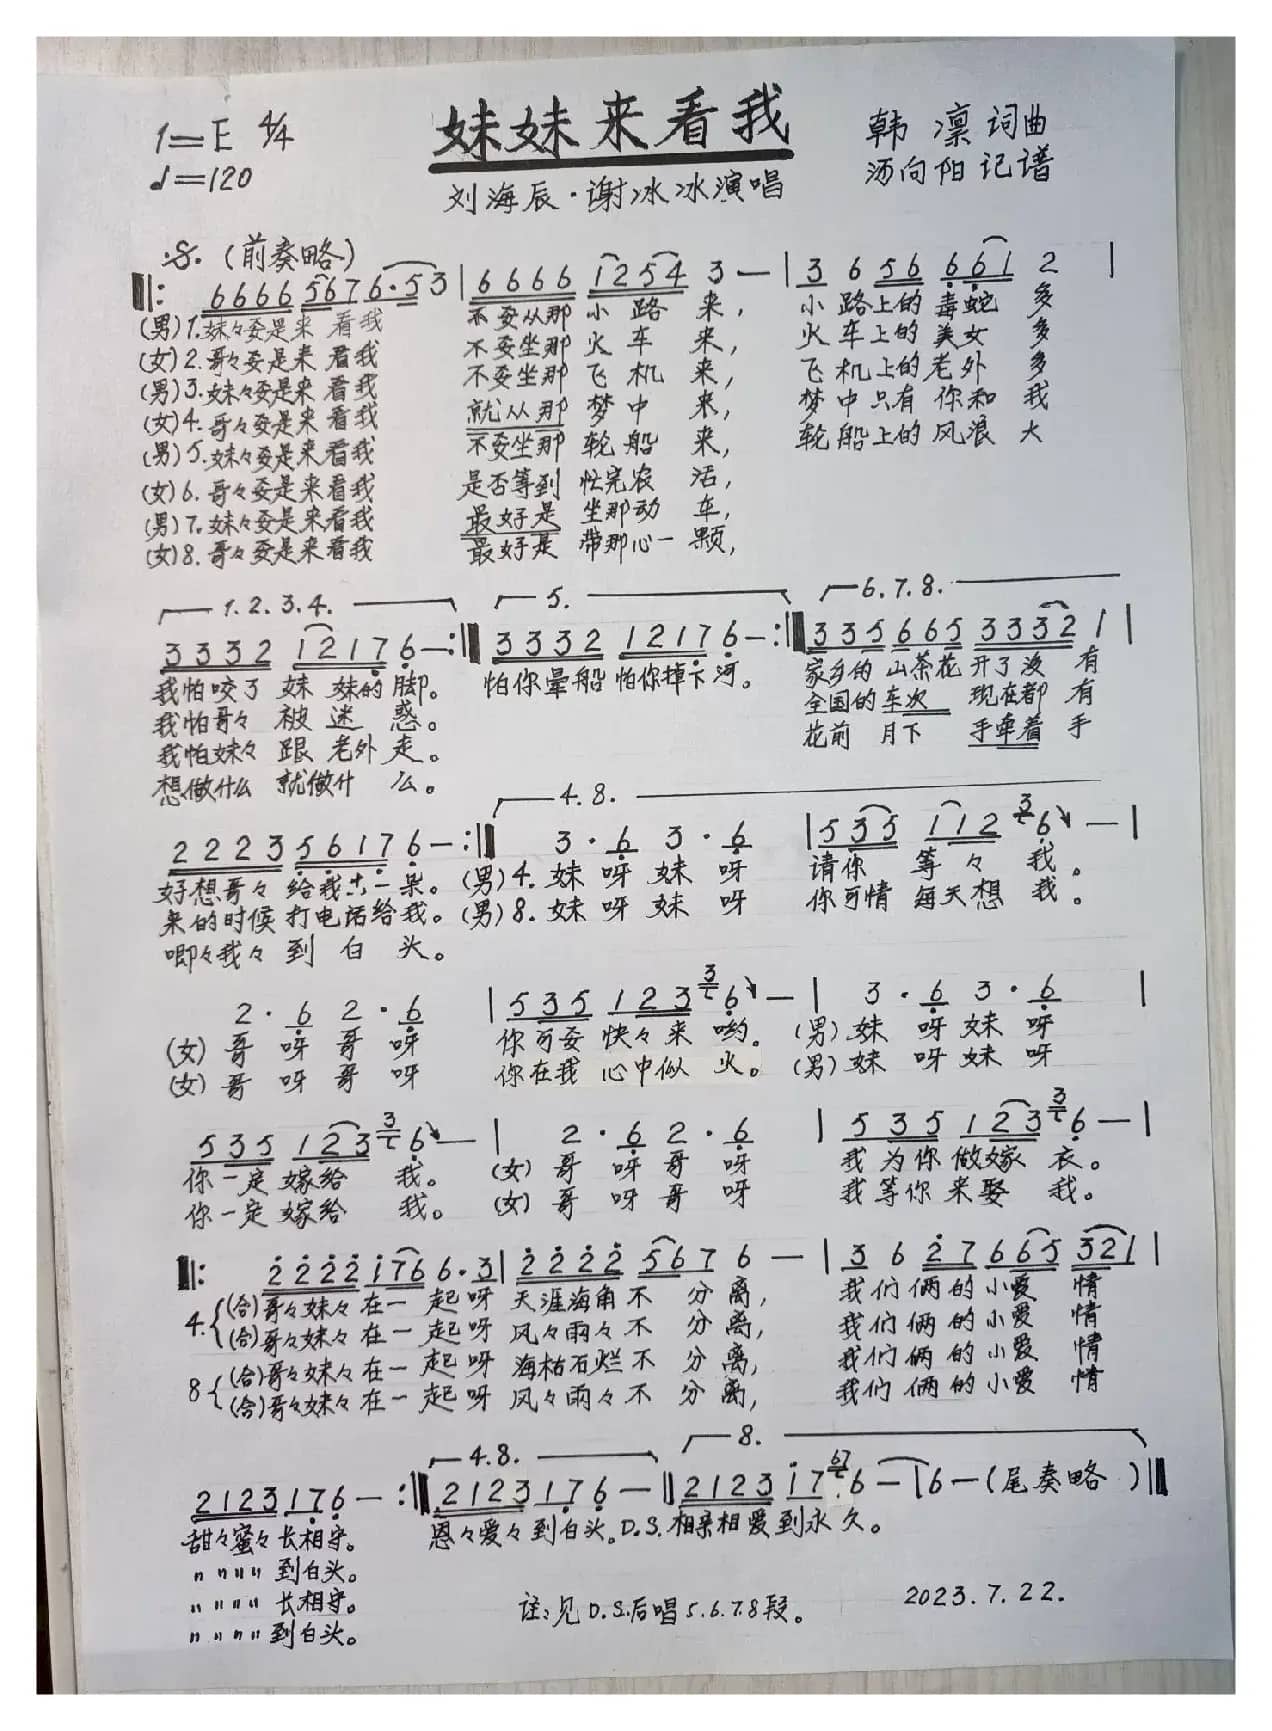 1=E 4/4
♩=120
妹妹来看我
刘海辰·谢冰冰演唱
韩 凛 词曲
汤向阳 记谱
(前奏略)
‖: 6666 5676·53 | 6666 1254 3 — | 3 6 56 661 2 |
(男)1.妹々要是来 看我 不要从那 小 路 来， 小 路上的 毒蛇 多
(女)2.哥々要是来 看我 不要坐那 火 车 来， 火 车上的 美女 多
(男)3.妹々要是来 看我 不要坐那 飞 机 来， 飞 机上的 老外 多
(女)4.哥々要是来 看我 就从那 梦 中 来， 梦 中只有 你和 我
(男)5.妹々要是来看我 不要坐那 轮 船 来， 轮 船上的 风浪 大
(女)6.哥々要是来看我 是否等到 忙完农 活，
(男)7.妹々要是来看我 最好是 坐那动 车，
(女)8.哥々要是来看我 最好是 带那心一 颗，
1.2.3.4. 5. 6.7.8.
3332 1217 6—:‖ 3332 1217 6—:‖ 335 665 3332 1 |
我怕咬了 妹 妹的 脚。 怕你晕船 怕你掉下河。 家乡的 山茶花 开了没 有
我怕哥々 被 迷 惑。 全国的 车次 现在都 有
我怕妹々 跟 老外 走。 花前 月下 手牵着 手
想做什么 就做什 么。
4.8.
2223 5617 6—:‖ 3·6 3·6 | 535 112 3 6 — |
好想哥々 给我 一朵。 (男)4.妹 呀 妹 呀 请你 等々 我。
来的时候 打电话给我。 (男)8.妹 呀 妹 呀 你可情 每天想 我。
唧々我々 到 白 头。
2·6 2·6 | 535 123 3 6 — | 3·6 3·6 |
(女)哥 呀 哥 呀 你可要 快々来 哟。 (男)妹 呀 妹 呀
(女)哥 呀 哥 呀 你在我 心中似 火。 (男)妹 呀 妹 呀
535 123 3 6 — | 2·6 2·6 | 535 123 3 6 — |
你一定 嫁给 我。 (女)哥 呀 哥 呀 我 为你 做嫁 衣。
你一定 嫁给 我。 (女)哥 呀 哥 呀 我 等你 来娶 我。
‖: 2222 1766·3 | 2222 567 6 — | 3 6 27 665 321 |
4.(合)哥々妹々 在一 起呀 天涯海角 不 分 离， 我们 俩的 小爱 情
(合)哥々妹々 在一 起呀 风々雨々 不 分 离， 我们 俩的 小爱 情
8(合)哥々妹々 在一 起呀 海枯石烂 不 分 离， 我们 俩的 小爱 情
(合)哥々妹々 在一 起呀 风々雨々 不 分 离， 我们 俩的 小爱 情
4.8. 8.
2123 176 — :‖ 2123 176 — ‖ 2123 17 67 6 — | 6 — (尾奏略)‖
甜々蜜々 长相守。 恩々爱々 到白头。D.S. 相亲相 爱到永 久。
〃〃〃〃 到白头。
〃〃〃〃 长相守。
〃〃〃〃 到白头。
注:见D.S.后唱5.6.7.8段。
2023.7.22.